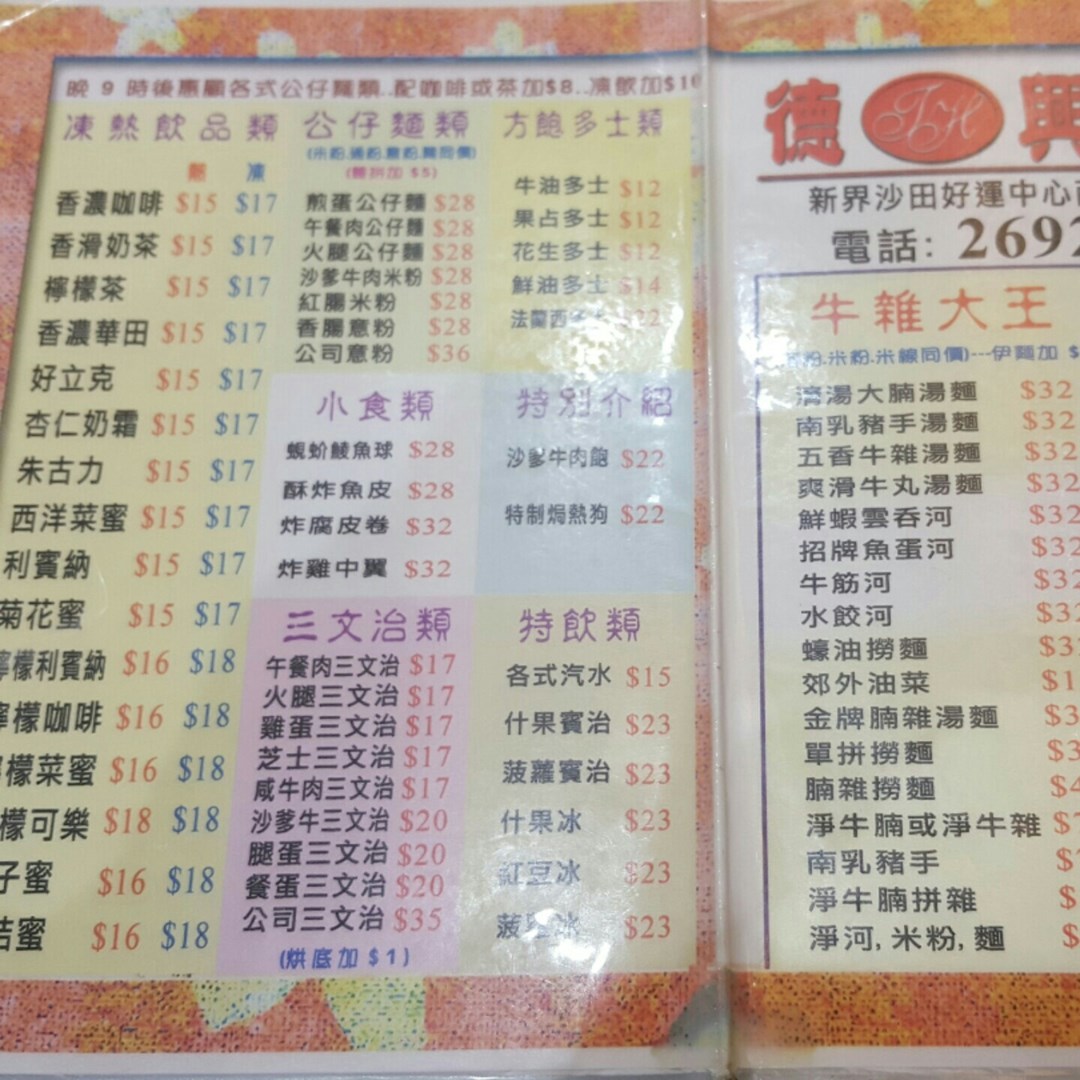 晚 9 時後惠顧各式公仔麵類..配咖啡或茶加$8..凍飲加$10
凍熱飲品類
熱 凍
香濃咖啡 $15 $17
香滑奶茶 $15 $17
檸檬茶 $15 $17
香濃華田 $15 $17
好立克 $15 $17
杏仁奶霜 $15 $17
朱古力 $15 $17
西洋菜蜜 $15 $17
利賓納 $15 $17
菊花蜜 $15 $17
檸檬利賓納 $16 $18
檸檬咖啡 $16 $18
檬菜蜜 $16 $18
檬可樂 $18 $18
子蜜 $16 $18
桔蜜 $16 $18
公仔麵類
(米粉.通粉.意粉.麵同價)
(雙拼加 $5)
煎蛋公仔麵 $28
午餐肉公仔麵 $28
火腿公仔麵 $28
沙爹牛肉米粉 $28
紅腸米粉 $28
香腸意粉 $28
公司意粉 $36
方飽多士類
牛油多士 $12
果占多士 $12
花生多士 $12
鮮油多士 $14
法蘭西多士 $22
小食類
蜆蚧鯪魚球 $28
酥炸魚皮 $28
炸腐皮卷 $32
炸雞中翼 $32
特別介紹
沙爹牛肉飽 $22
特制焗熱狗 $22
三文治類
午餐肉三文治 $17
火腿三文治 $17
雞蛋三文治 $17
芝士三文治 $17
咸牛肉三文治 $17
沙爹牛三文治 $20
腿蛋三文治 $20
餐蛋三文治 $20
公司三文治 $35
(烘底加 $1)
特飲類
各式汽水 $15
什果賓治 $23
菠蘿賓治 $23
什果冰 $23
紅豆冰 $23
菠蘿冰 $23
德 TH 興
新界沙田好運中心商
電話: 2692
牛雜大王
粉.米粉.米線同價)---伊麵加 $
清湯大腩湯麵 $32
南乳豬手湯麵 $32
五香牛雜湯麵 $32
爽滑牛丸湯麵 $32
鮮蝦雲吞河 $32
招牌魚蛋河 $32
牛筋河 $32
水餃河
蠔油撈麵
郊外油菜
金牌腩雜湯麵
單拼撈麵
腩雜撈麵
淨牛腩或淨牛雜
南乳豬手
淨牛腩拼雜
淨河, 米粉, 麵